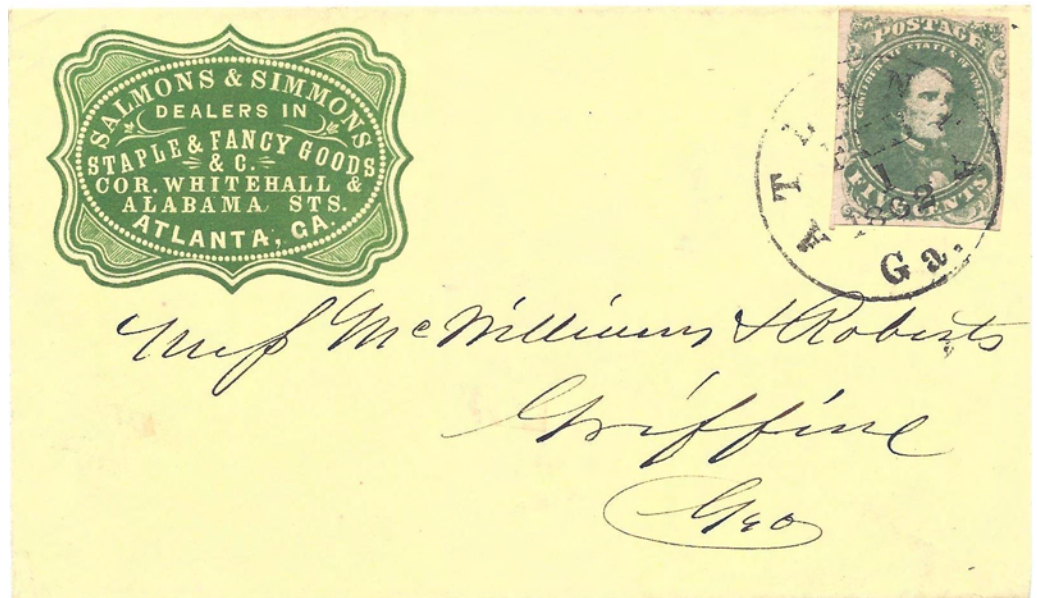 SALMONS & SIMMONS
DEALERS IN
STAPLE & FANCY GOODS
& C.
COR. WHITEHALL &
ALABAMA STS.
ATLANTA, GA.
POSTAGE
CONFEDERATE STATES OF AMERICA
FIVE CENTS
ATLANTA
1
1862
Ga.
Mess McWilliams & Roberts
Griffine
Geo